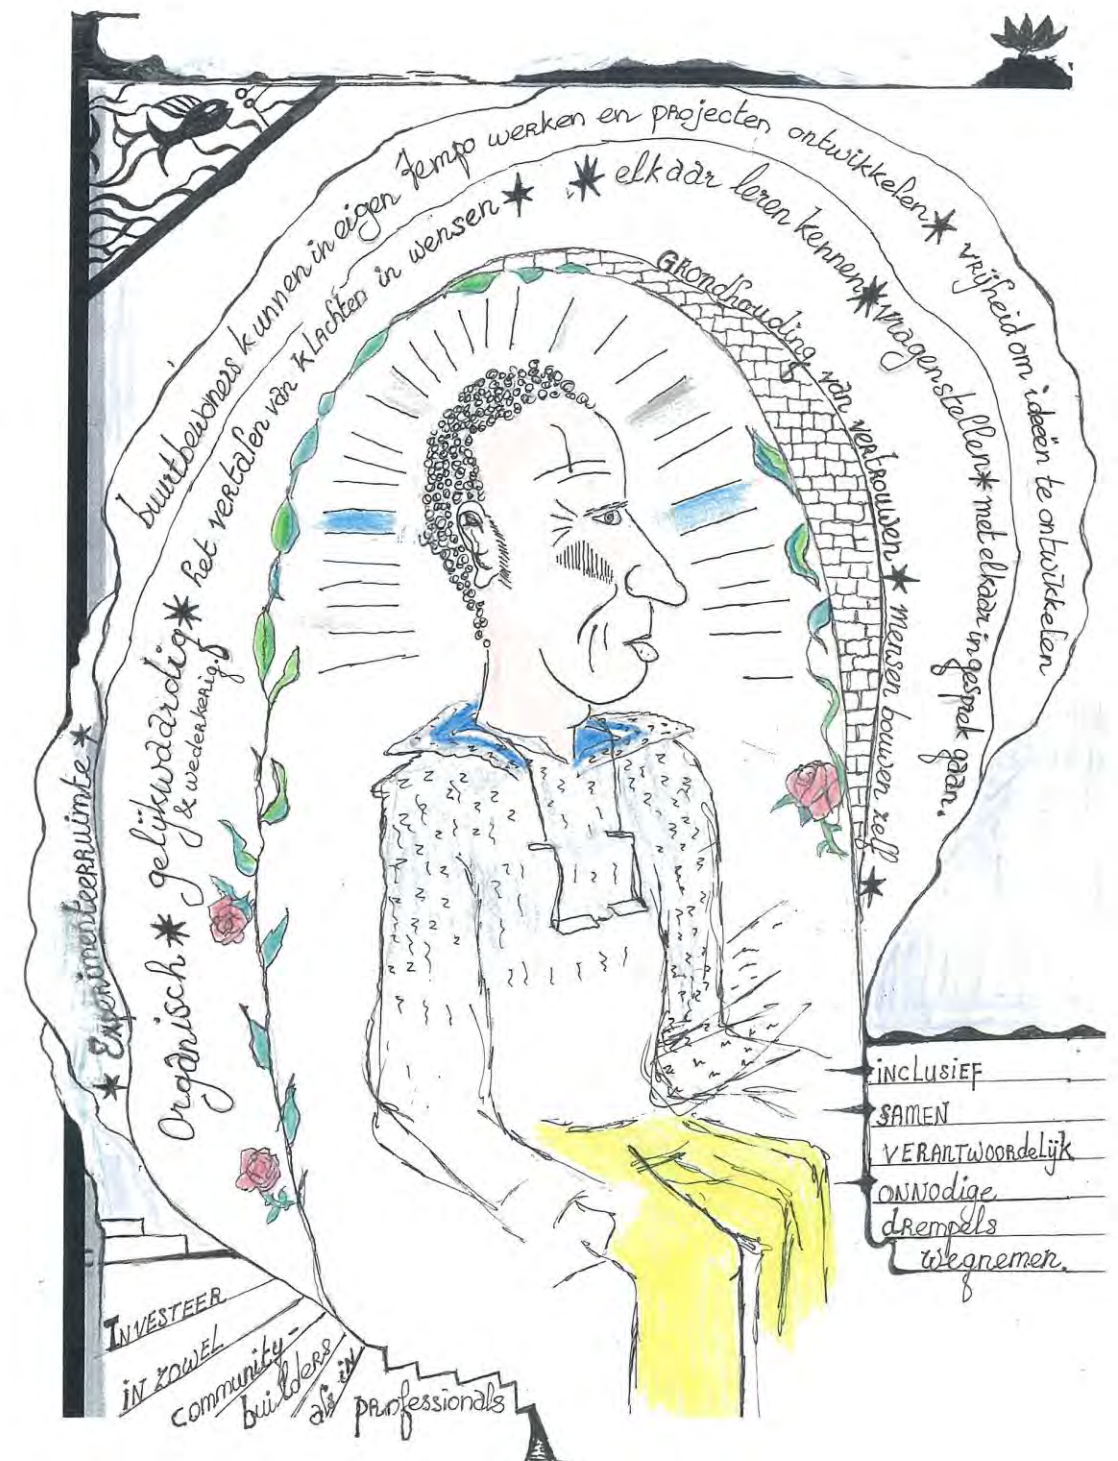 * Experimenteerruimte *
buurtbewoners kunnen in eigen tempo werken en projecten ontwikkelen * vrijheid om ideeën te ontwikkelen
Organisch * gelijkwaardig * het vertalen van klachten in wensen *
& wederkerig.
* elkaar leren kennen * vragen stellen * met elkaar in gesprek gaan.
Grondhouding van vertrouwen * mensen bouwen zelf *
INCLUSIEF
SAMEN
VERANTWOORdelijk
ONNodige
dRempels
wegnemen.
INVESTEER
IN ZOWEL
community-
builders
als in
professionals